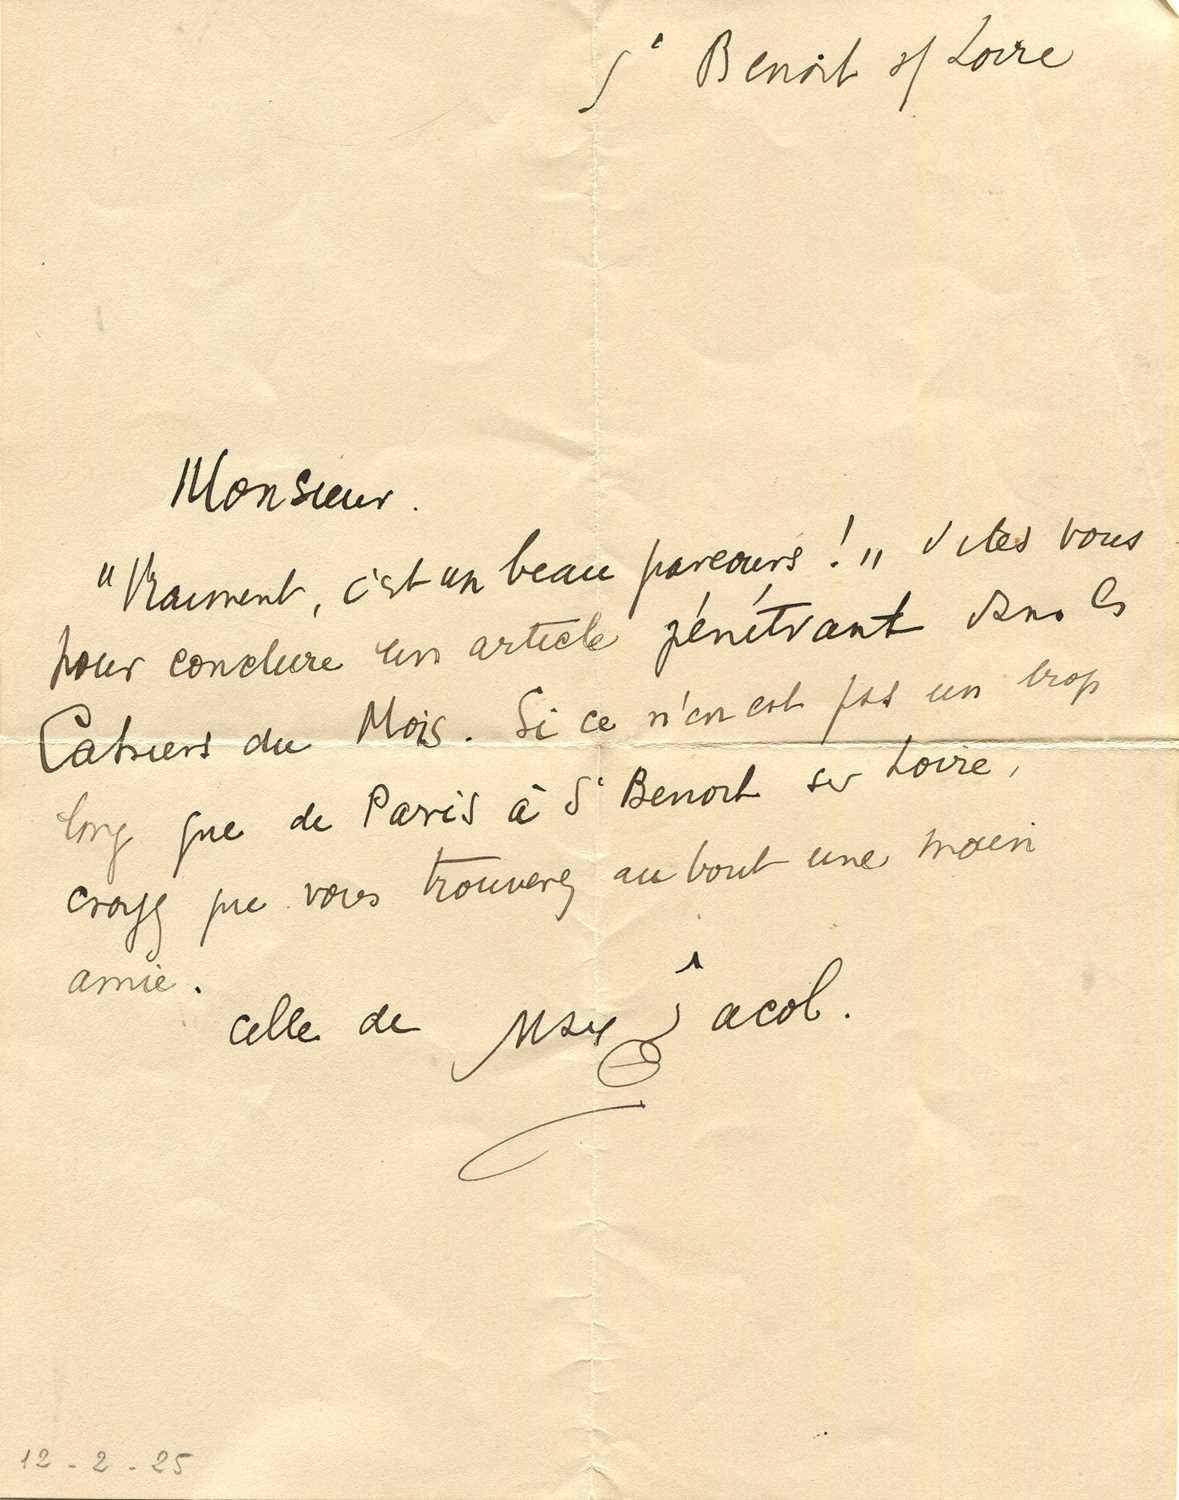 St Benoit s/ Loire
Monsieur.
"Vraiment, c'est un beau parcours!" dites vous
pour conclure un article pénétrant dans les
Cahiers du Mois. Si ce n'en est pas un trop
long que de Paris à St Benoit sur Loire,
croyez que vous trouverez au bout une main
amie.
celle de Max Jacob.
12-2-25